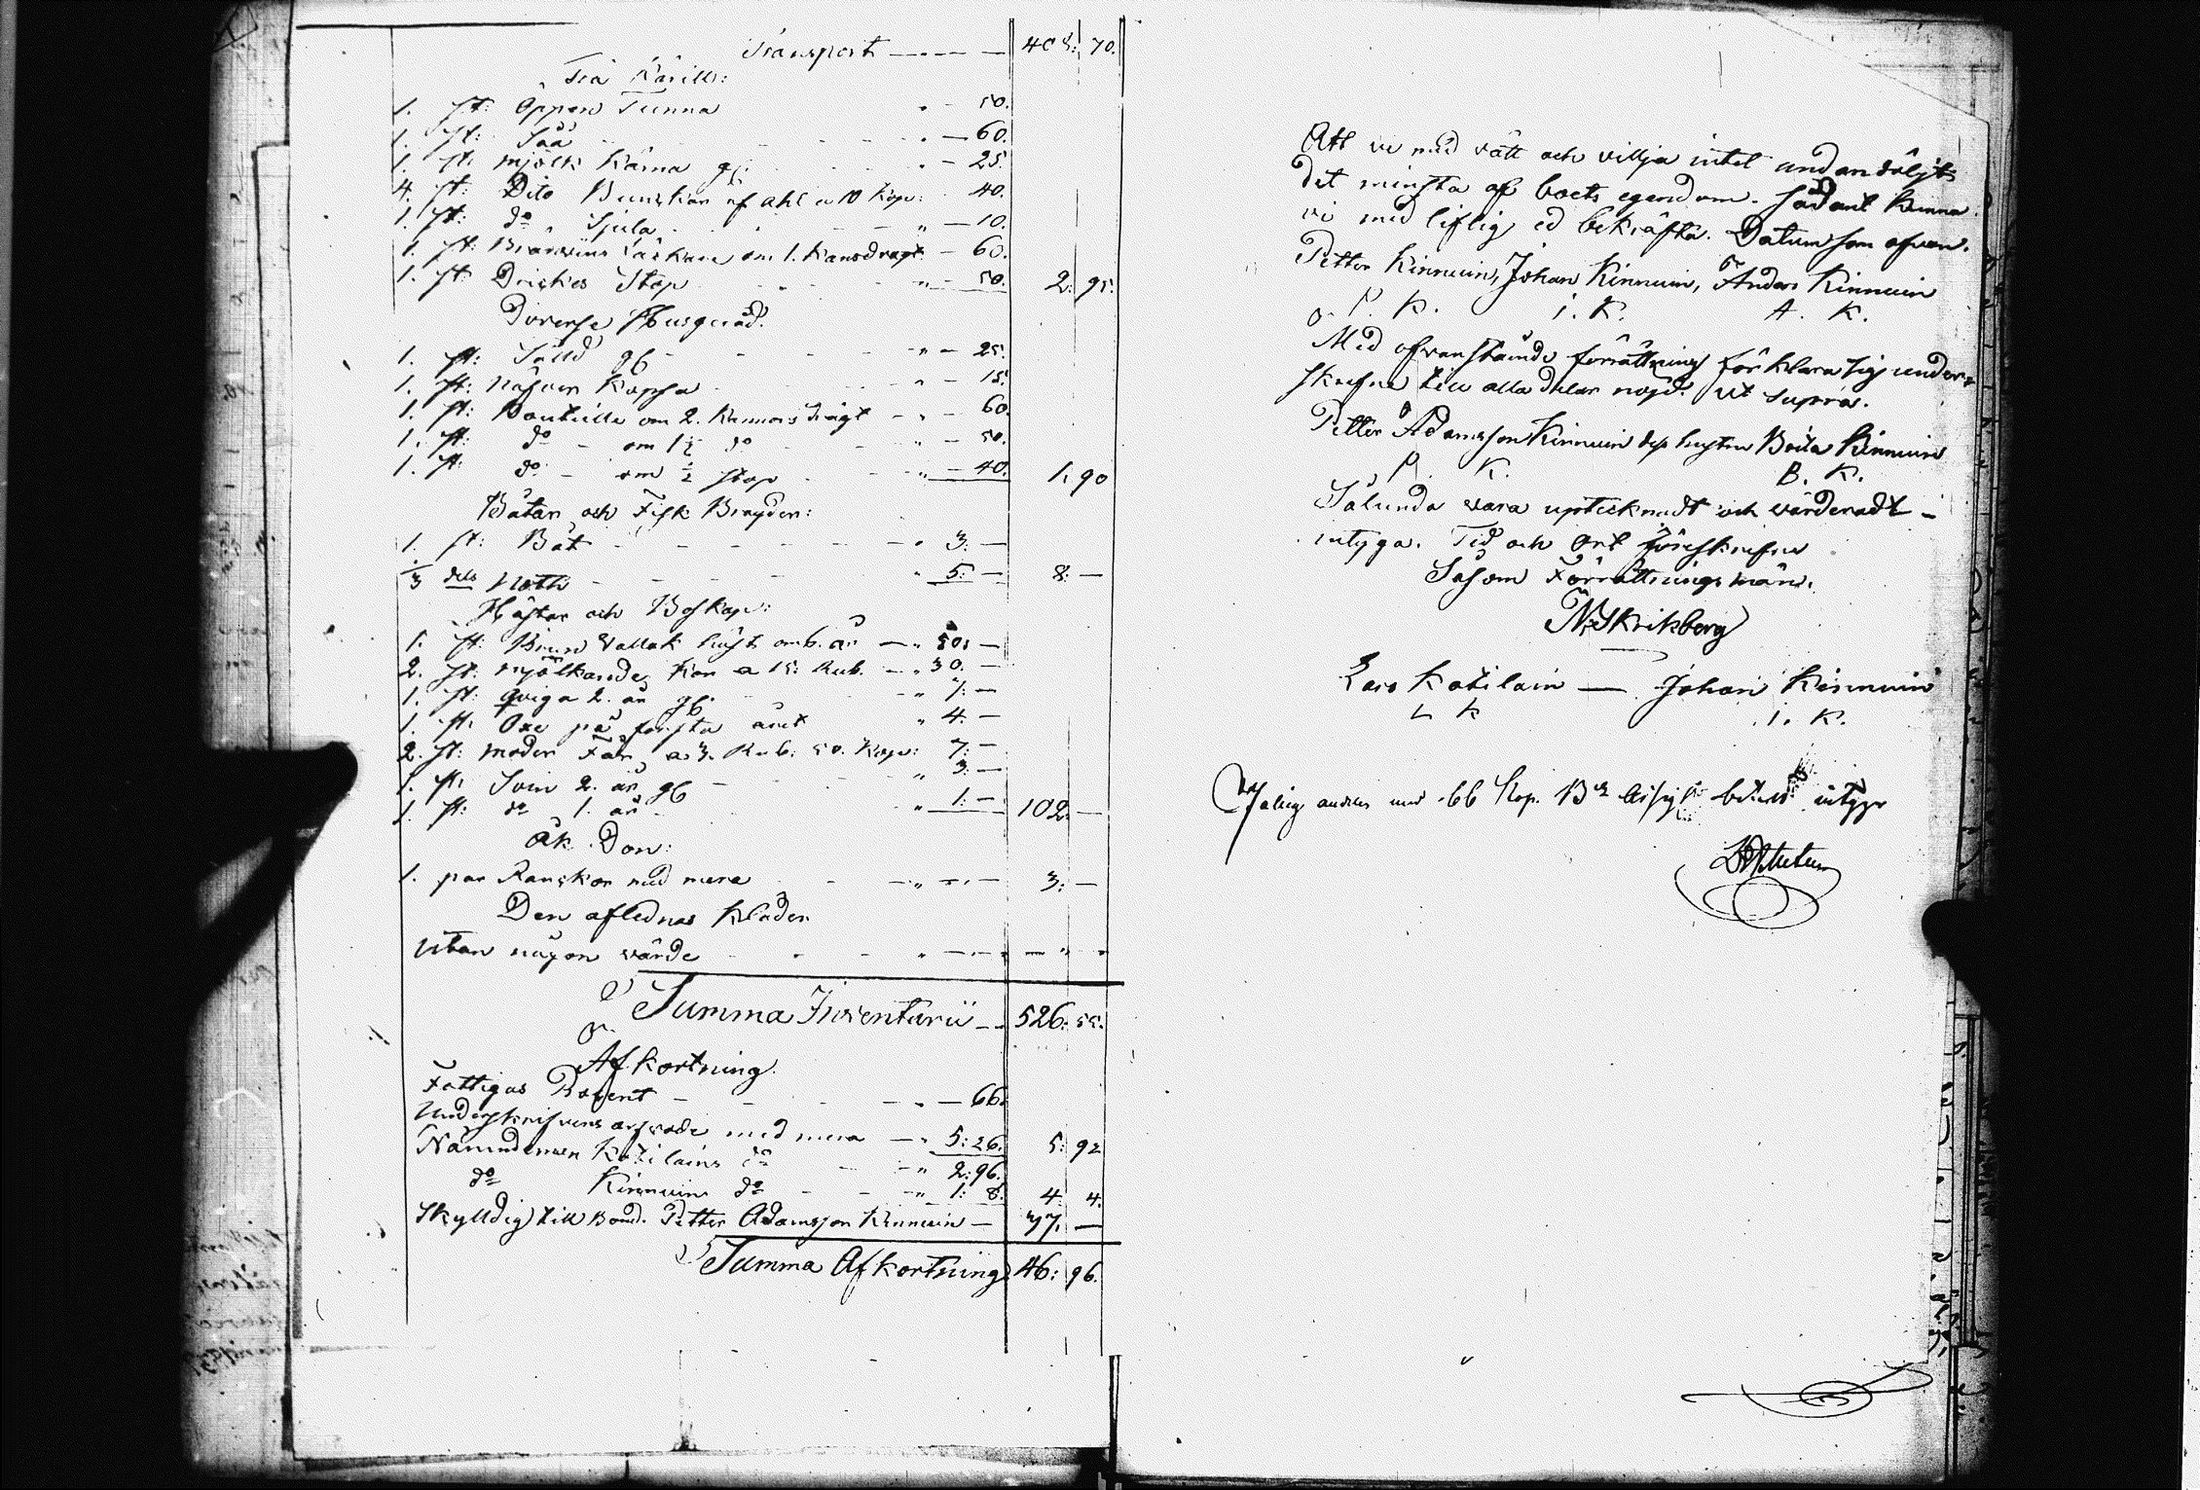 Transport — 408: 70.
Trä Kärill:
1. st: Öppen Tunna " — 50.
1. st: Såå " — 60.
1. st: mjölk Kärna gl: " — 25.
4. st: Dito Bunckar af ahl a 10 Kop: 40.
1. st: do Stjula " — 10.
1. st: Bränvins Läskare om 1. Kansdragt — 60.
1. st: Drickes Stop " — 50. 2: 95.
Diverse Husgeråd.
1. st: Sålld gl " — 25.
1. st: Näfver Kappsa " — 15.
1. st: Bouteille om 2. Kannors drägt " — 60.
1. st: do — om 1½ do " — 50.
1. st: do — om ½ stop " — 40. 1: 90
Båtar och Fisk Brygder:
1. st: Båt " 3: —
⅓ dels Noth " 5: — 8: —
Hästar och Boskap:
1. st: Brun Vallak häst om 6. år — " 50: —
2. st: mjölkande Kor a 15: Rub. — " 30. —
1. st: Qviga 2. år gl " 7: —
1. st: Oxe på första året " 4. —
2. st: moder Får a 3. Rub: 50. Kop: 7: —
1. st: Svin 2. år gl " 3: —
1. st: do 1. år " 1: — 102: —
Åk Don:
1. par Ranckor med mera 3: —
Den aflednas Kläder
utan någon värde
Summa Inventarii — 526: 55.
Afkortning.
Fattigas Procent — 66.
Underskrifvens arfvode med mera — " 5: 26. 5: 92
Nämndeman Kotilains do — " 2: 96.
do Kinnuins do — " 1: 8. 4: 4.
Skylldig till Bond. Petter Adamsson Kinnuin — 37. —
Summa Afkortning 46: 96.
Att vi med vått och villja intet undandöljt
det minsta af boets egendom. Sådant kunna
vi med liflig ed bekräfta. Datum som ofvan.
Petter Kinnuin, Johan Kinnuin, Anders Kinnuin
P. K. I. K. A. K.
Med ofvanstående förrättning förklara sig under-
skrefne till alla delar nöjd. Ut supra.
Petter Adamsson Kinnuin dess hustru Boita Kinnuin
P. K. B. K.
Sålunda vara upteknadt och värderadt —
intyga. Tid och Ort föreskrefne
Såsom Förrättnings män.
N. Skrikberg
Lars Kotilain — Johan Kinnuin
L K I. K.
66 Kop. Bco Assign: intyga